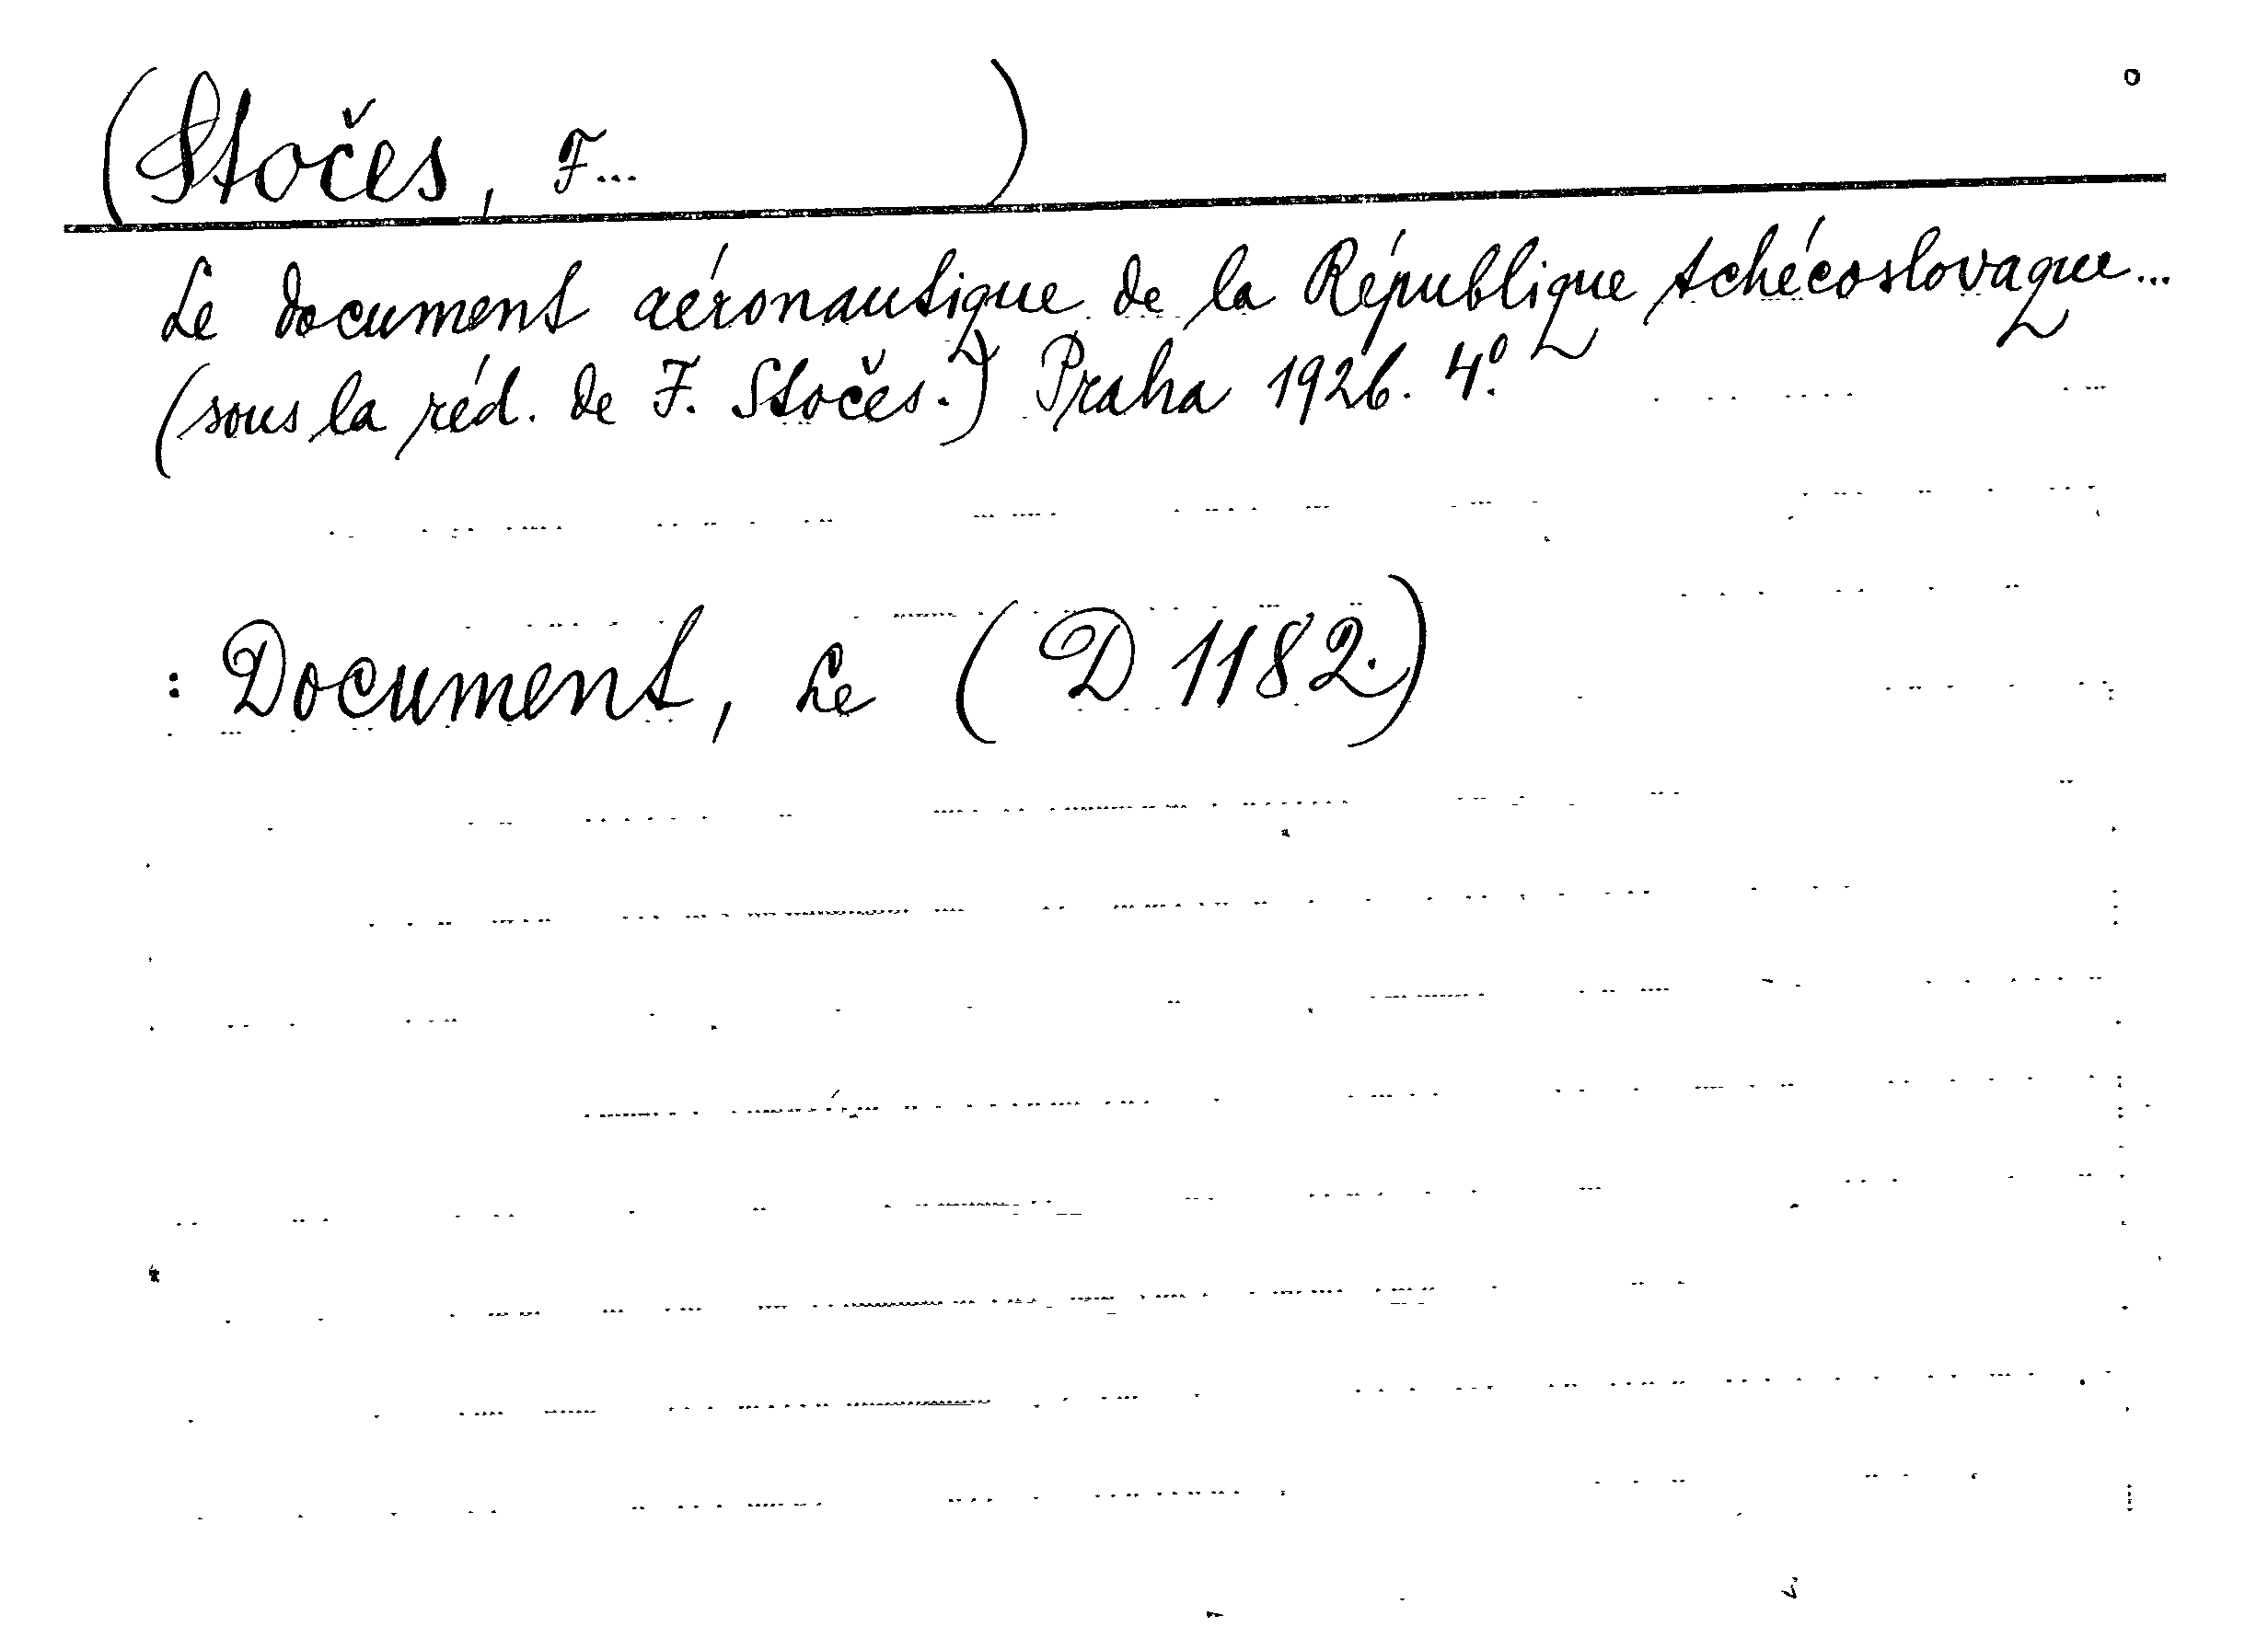 (Stočes, F... )
Le document aéronautique de la République tchécoslovaque...
(sous la réd. de F. Stočes.) Praha 1926. 4°.
: Document, Le (D 1182.)